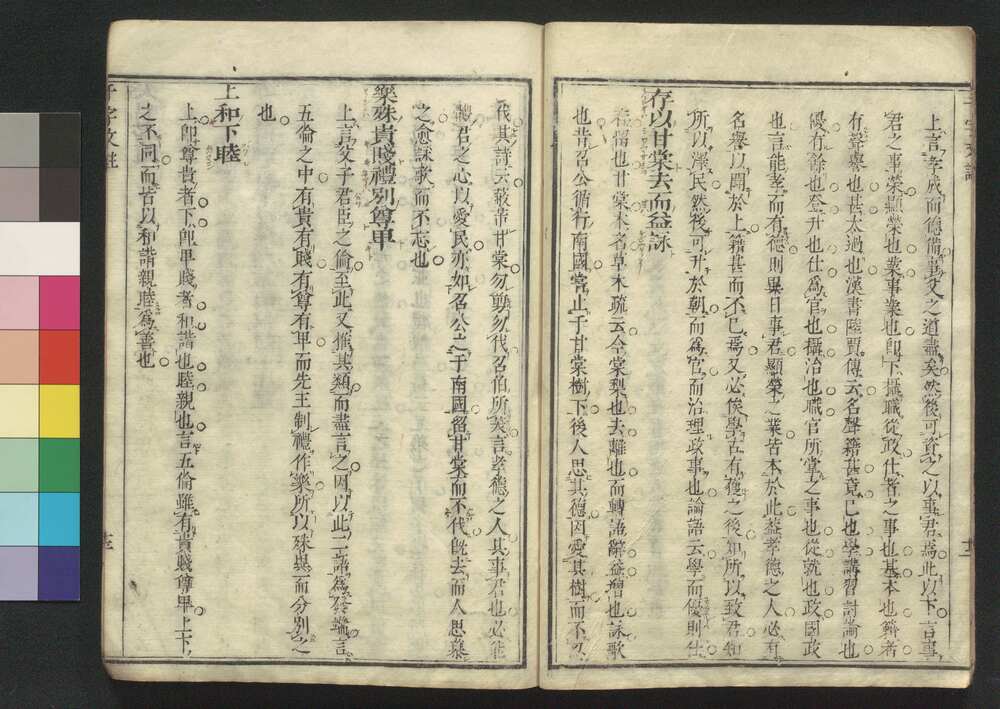 上言孝成而德備事父之道盡矣然後可資之以事君焉此以下言事
君之事榮顯榮也業事業也即下攝職從政仕者之事也基本也籍者
有聲譽也甚太過也漢書陸賈傳云名聲籍甚竟已也學講習討論也
優有餘也登升也仕爲官也攝治也職官所掌之事也從就也政國政
也言能孝而有德則異日事君顯榮之業皆本於此蓋孝德之人必有
名譽以聞於上籍甚而不已焉又必俟學古有獲之後知所以致君知
所以澤民然後可升於朝而爲官而治理政事也論語云學而優則仕
存以甘棠去而益詠
存留也甘棠木名草木疏云今棠梨也去離也而轉語辭益增也詠歌
也昔召公循行南國嘗止于甘棠樹下後人思其德因愛其樹而不忍
伐其詩云蔽芾甘棠勿翦勿伐召伯所茇言孝德之人其事君也必能
體君之心以愛民亦如召公之于南國留甘棠而不伐旣去而人思慕
之愈詠歌而不忘也
樂殊貴賤禮別尊卑
上言父子君臣之倫至此又推其類而盡言之因以此二語爲發端言
五倫之中有貴有賤有尊有卑而先王制禮作樂所以殊異而分別之
也
上和下睦
上卽尊貴者下卽卑賤者和諧也睦親也言五倫雖有貴賤尊卑上下
之不同而皆以和諧親睦爲善也